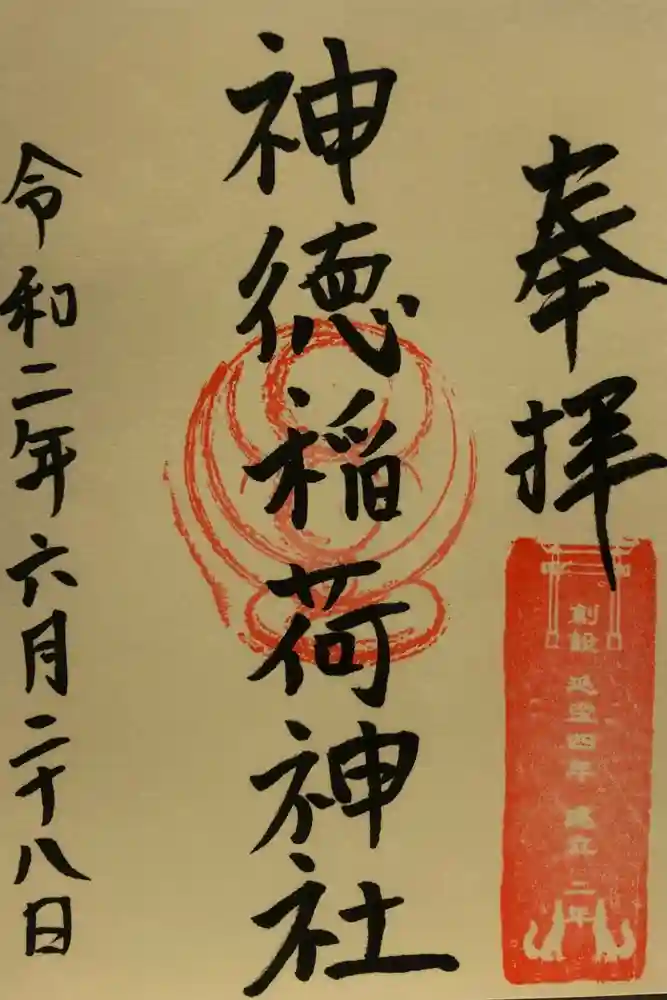 奉拝
創設 延宝四年 遷宮 二年
神徳稲荷神社
令和二年六月二十八日